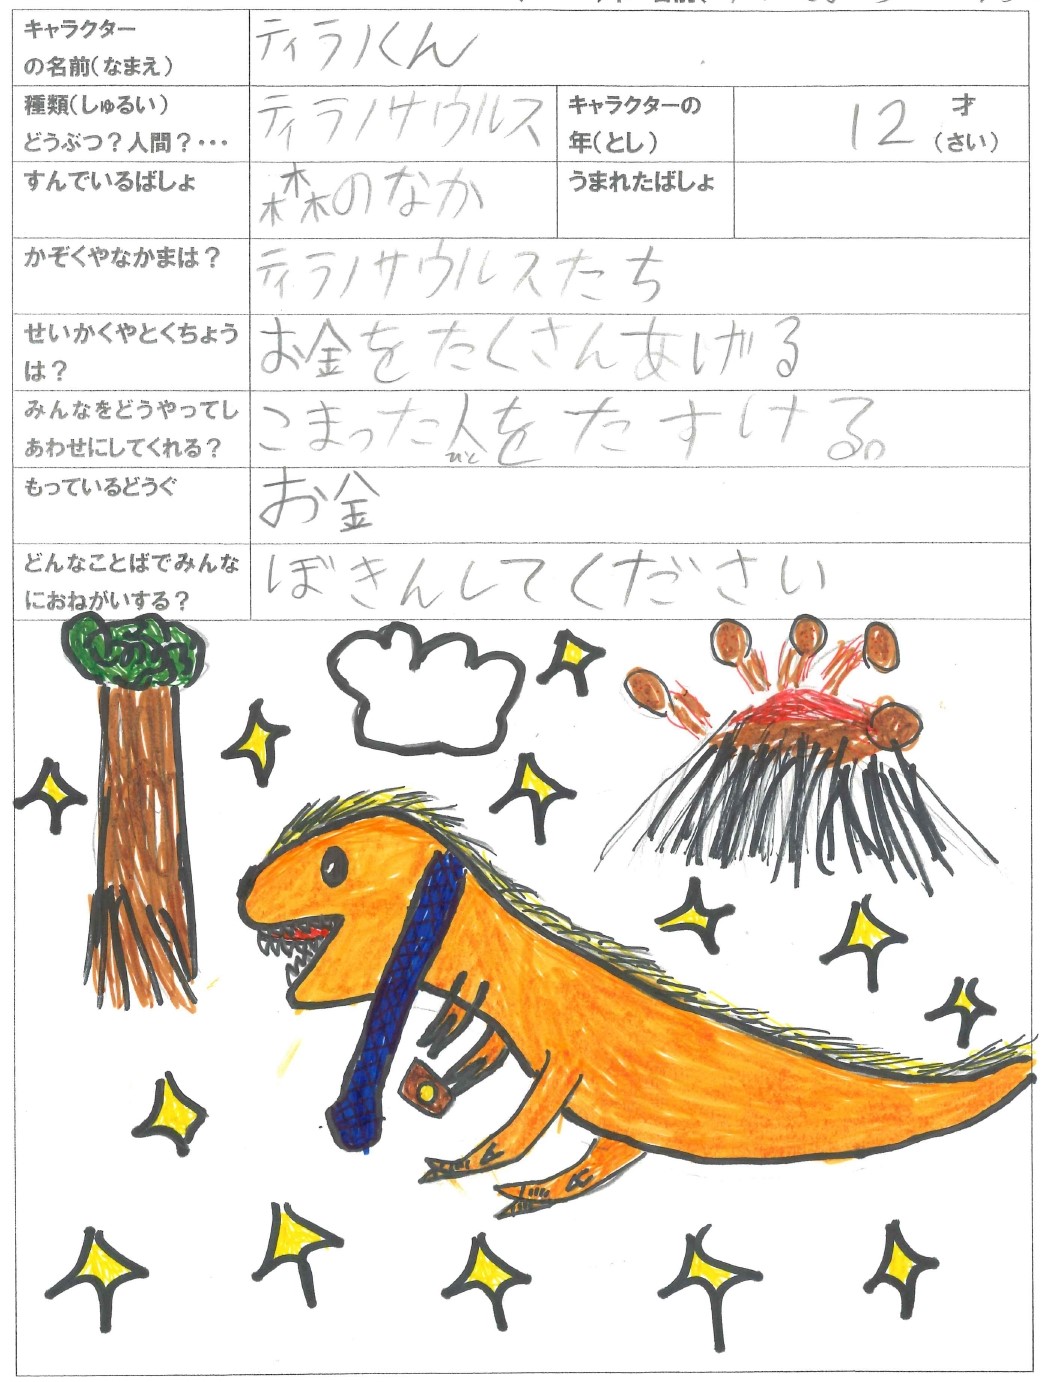 キャラクター
の名前(なまえ)
ティラノくん
種類(しゅるい)
どうぶつ?人間?・・・
ティラノサウルス
キャラクターの
年(とし)
12 才
(さい)
すんでいるばしょ
森のなか
うまれたばしょ
かぞくやなかまは?
ティラノサウルスたち
せいかくやとくちょう
は?
お金をたくさんあげる
みんなをどうやってし
あわせにしてくれる?
こまった人をたすける。
ひと
もっているどうぐ
お金
どんなことばでみんな
におねがいする?
ぼきんしてください